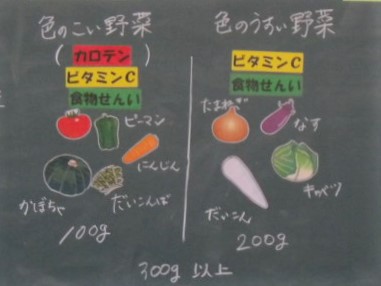 色のこい野菜
(カロテン)
ビタミンC
食物せんい
ピーマン
にんじん
かぼちゃ
だいこんば
100g
色のうすい野菜
ビタミンC
食物せんい
たまねぎ
なす
キャベツ
だいこん
200g
300g 以上